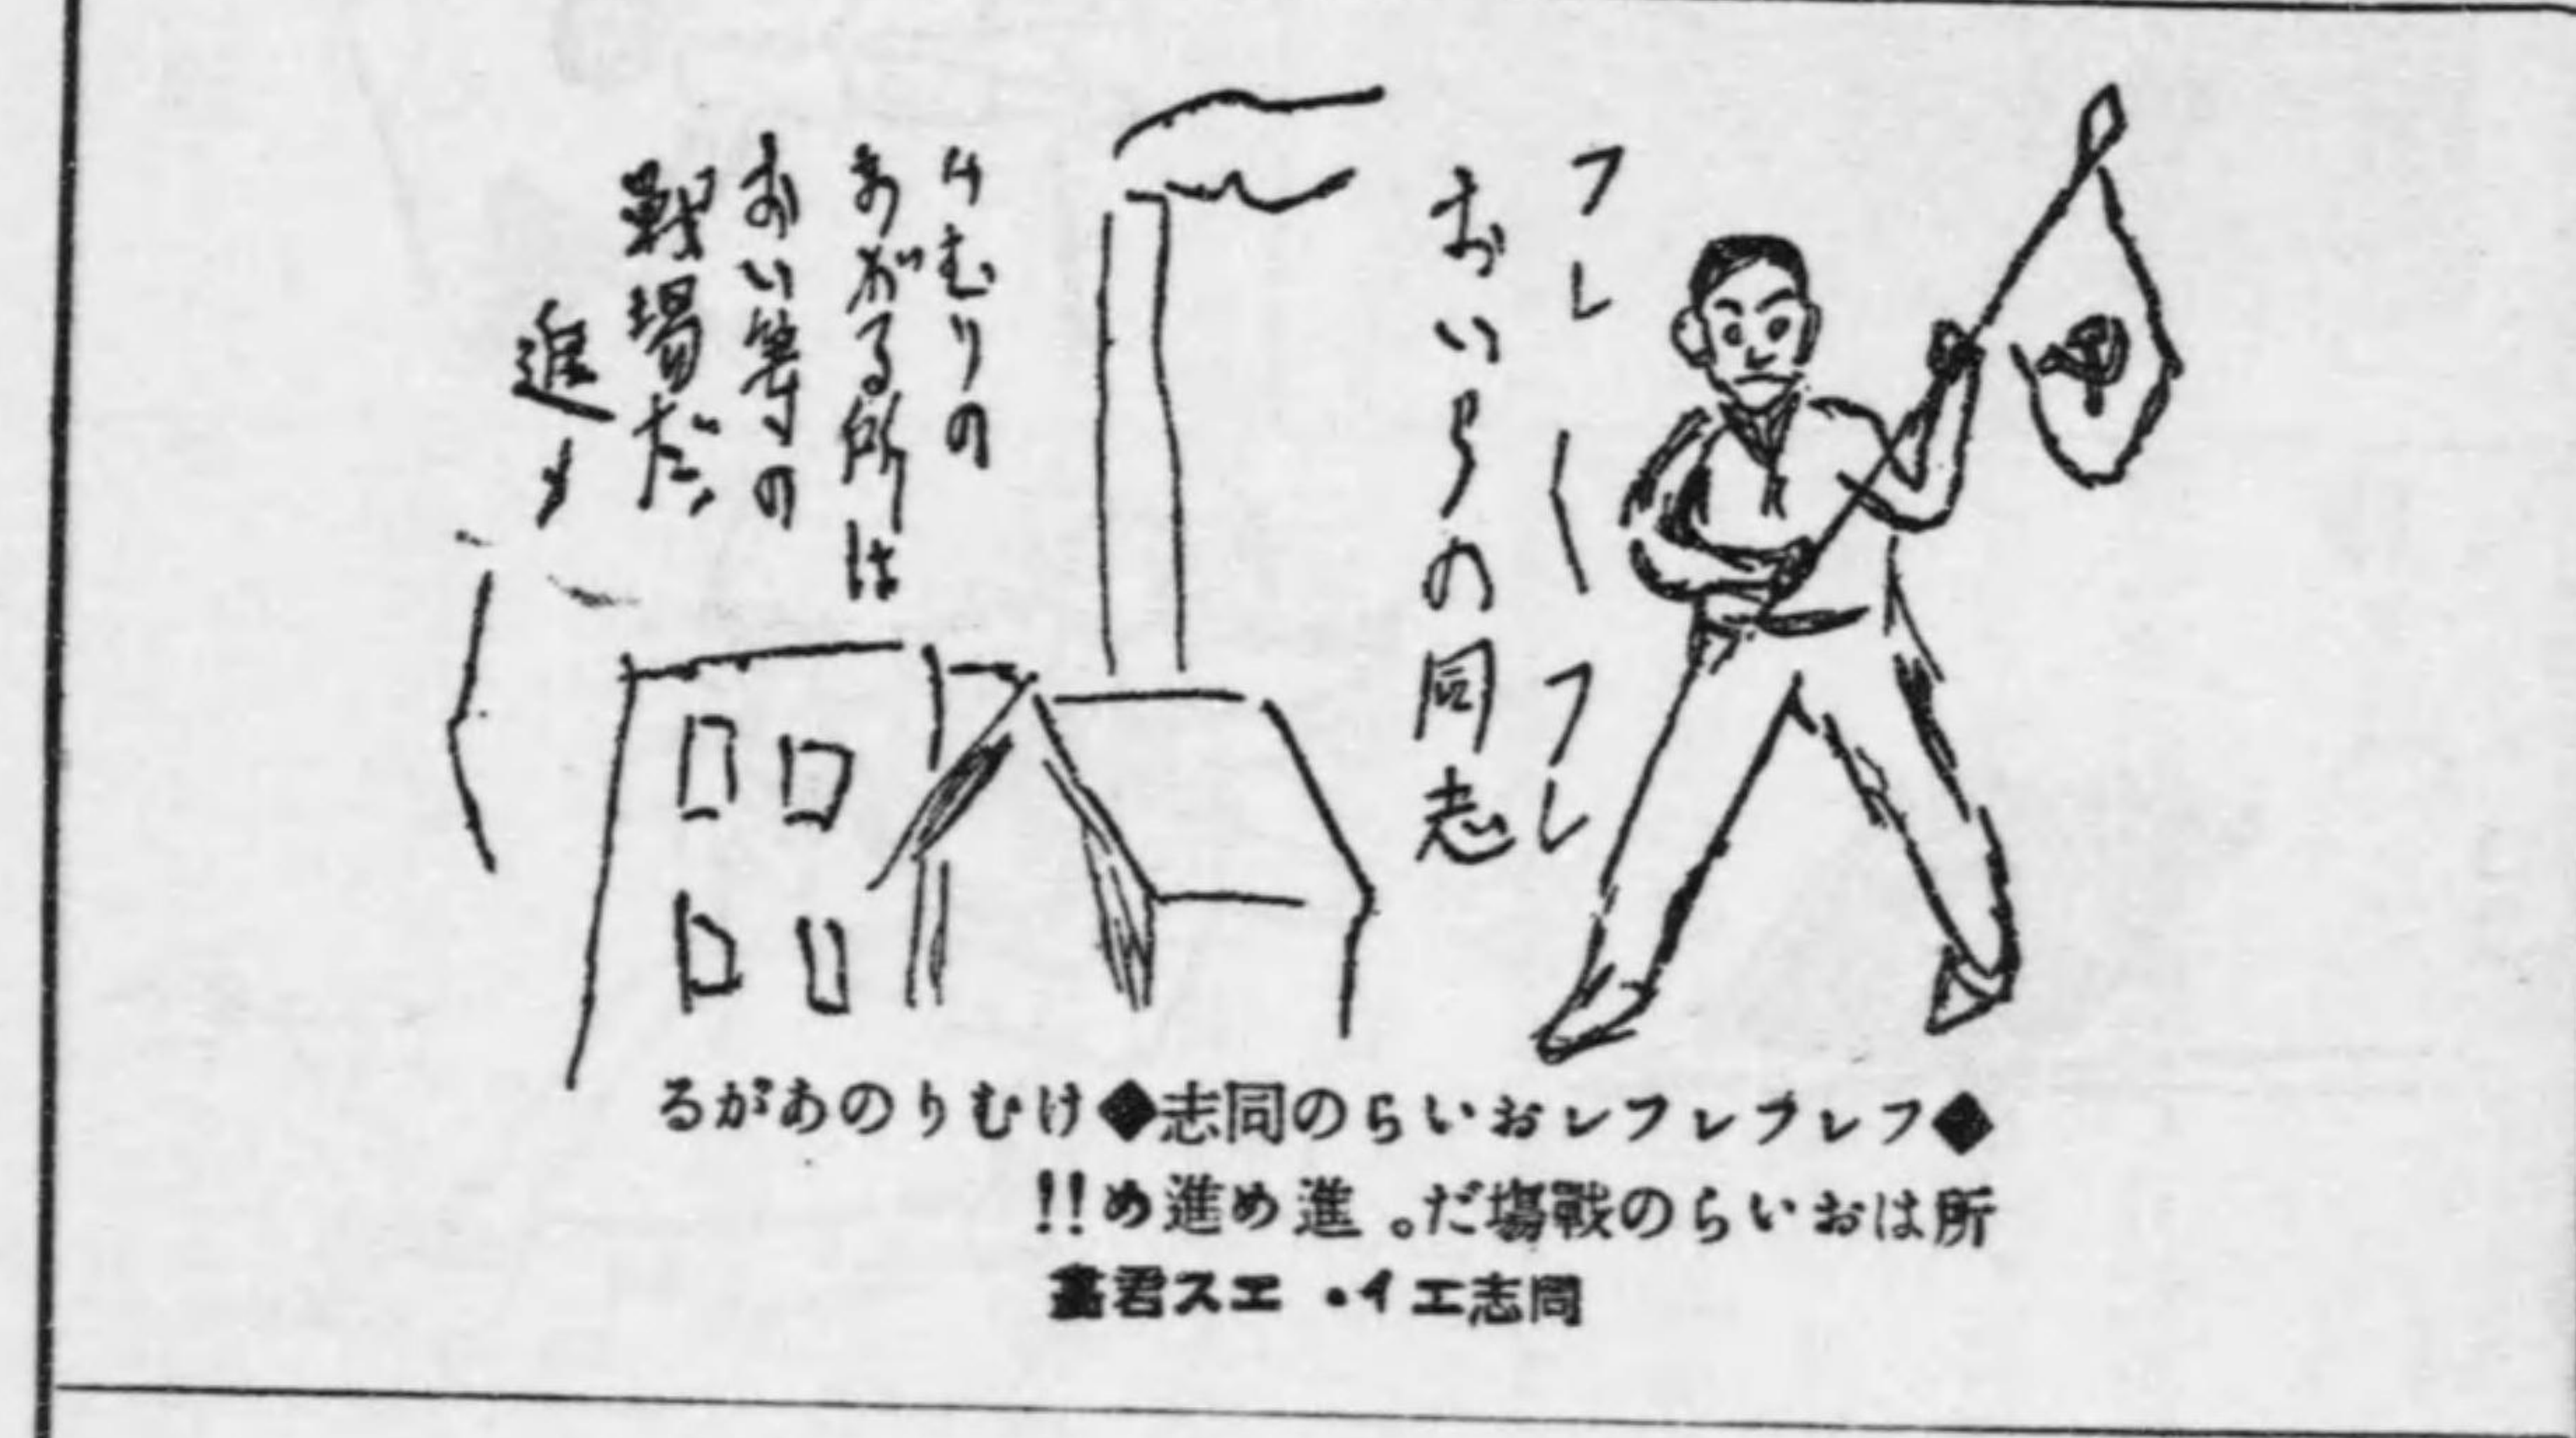 フレ〱フレ
おいらの同志
けむりの
あがる所は
おい等の
戰場だ、
進メ〱
◆フレフレフレおいらの同志◆けむりのあがる
所はおいらの戰塲だ。進め進め!!
同志エイ・エス君畫